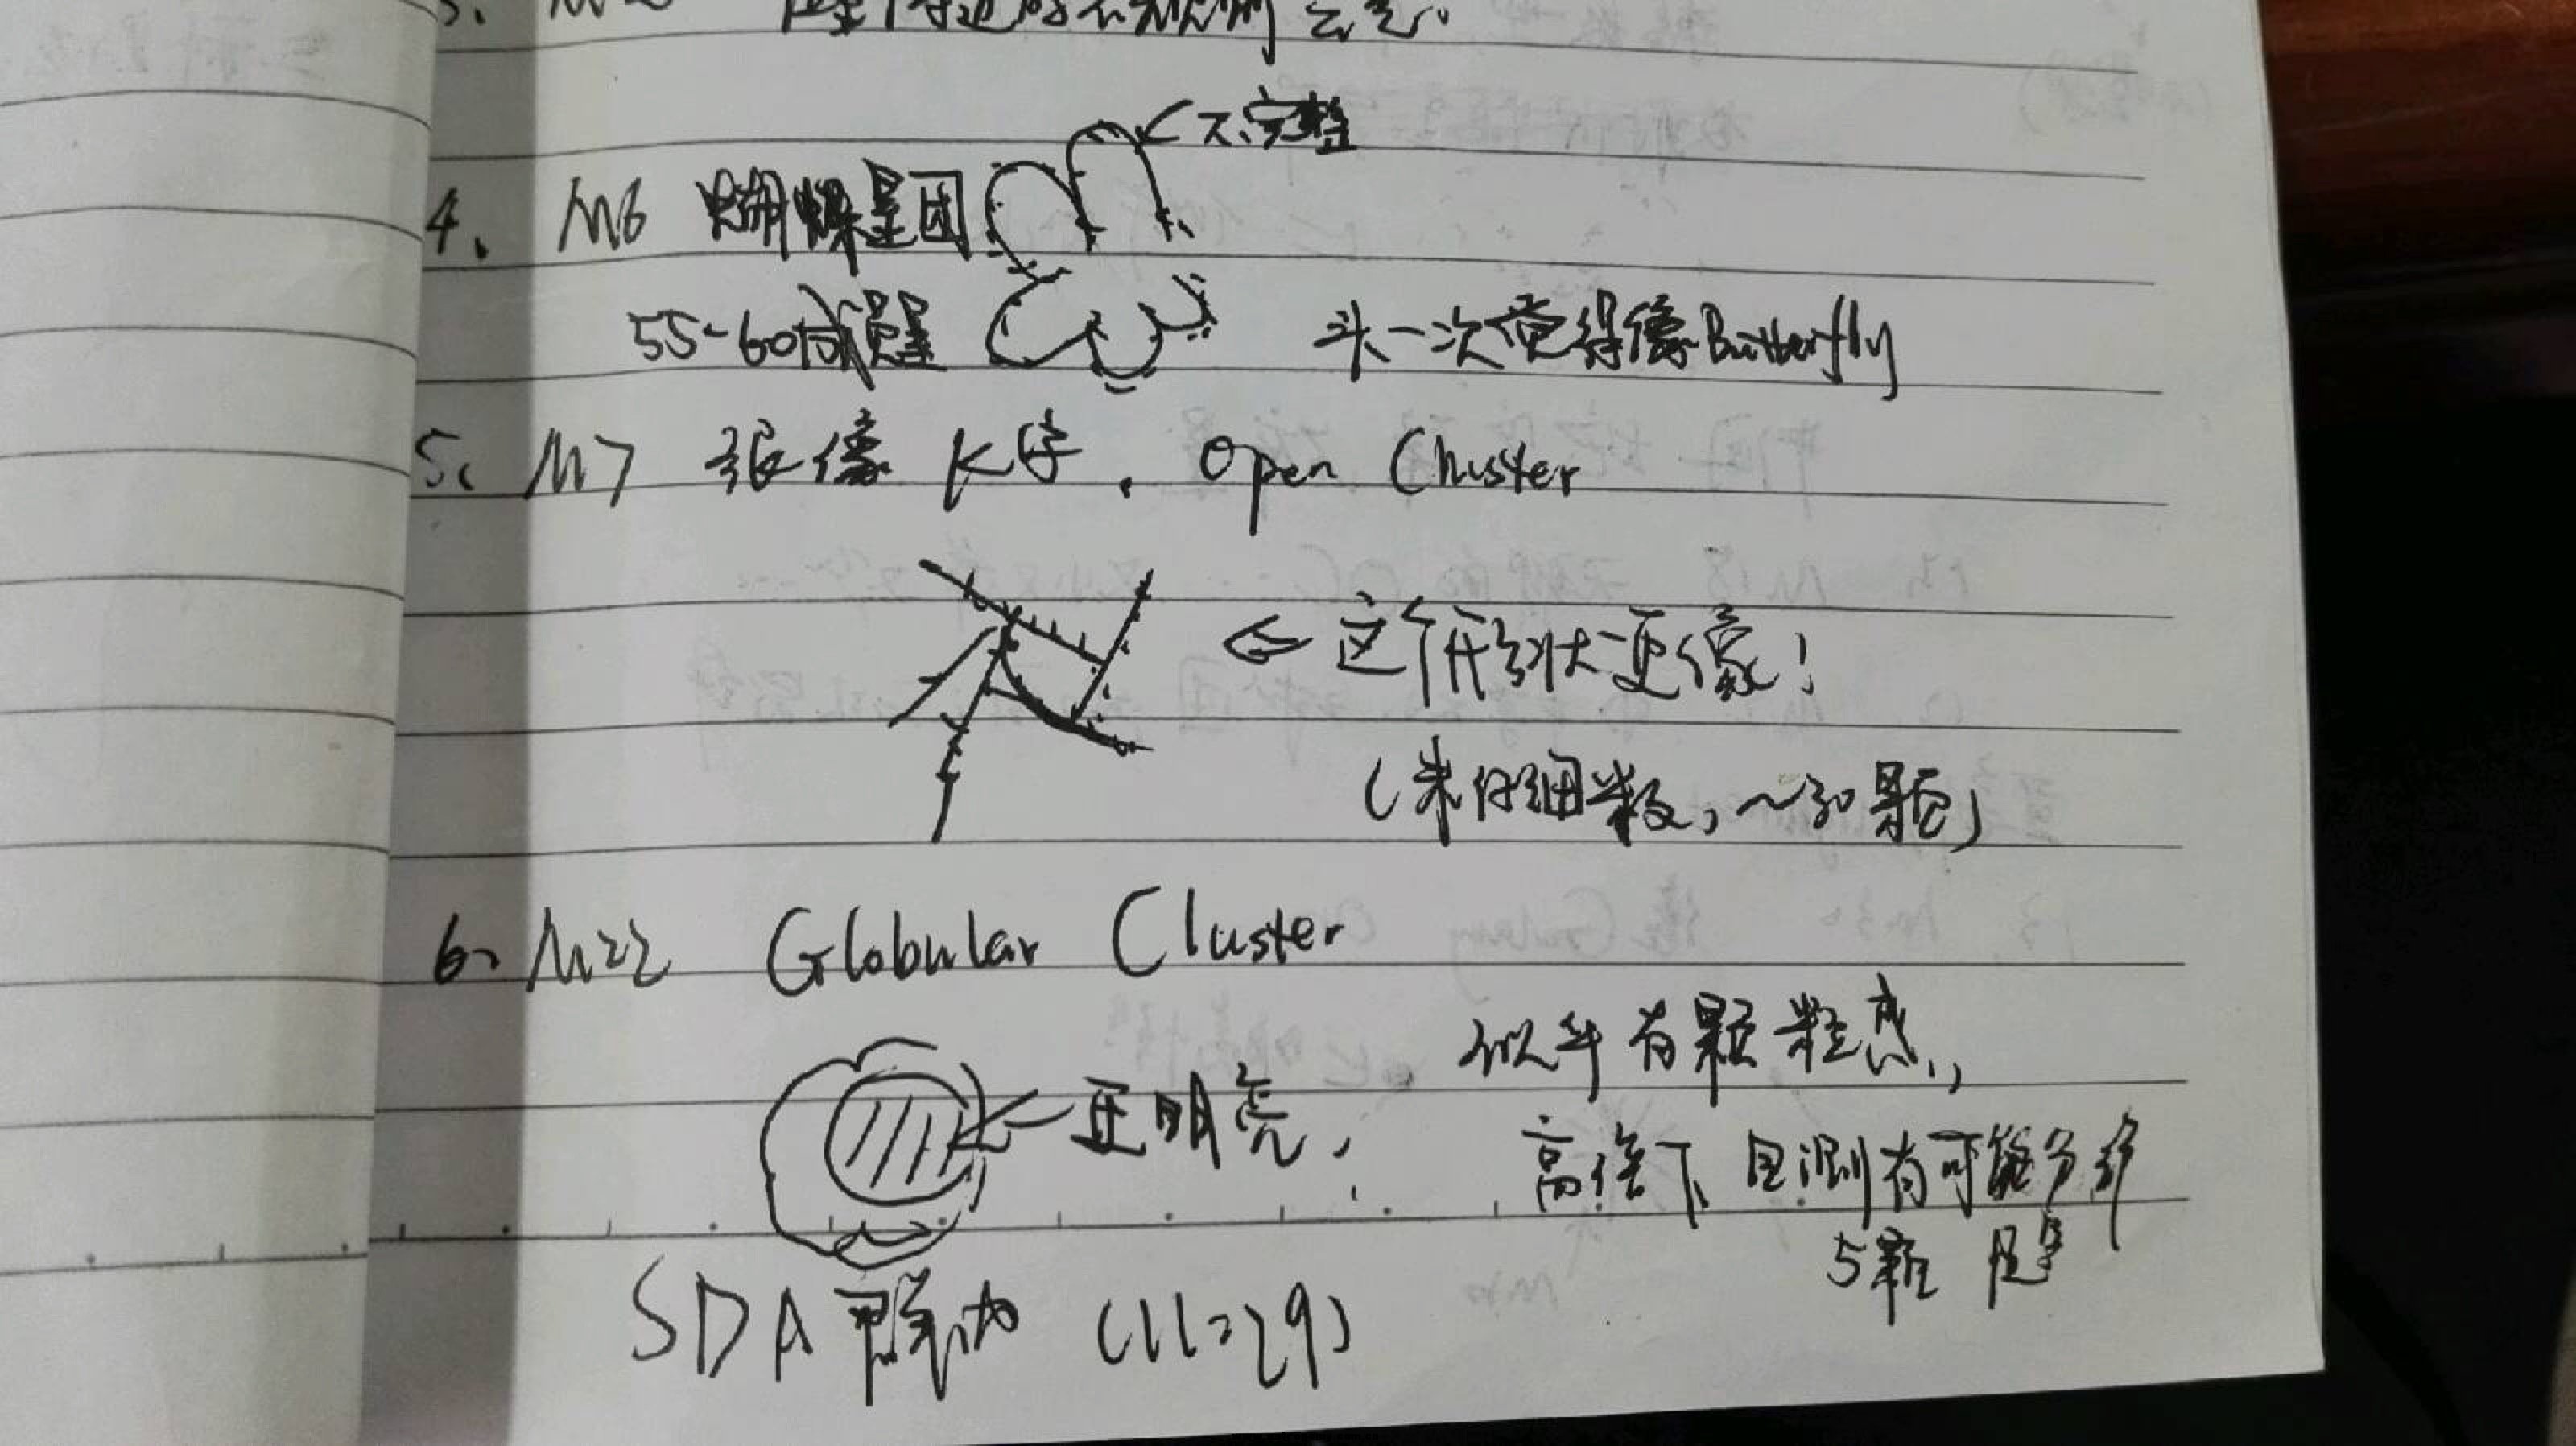 不完整
4、M6 蝴蝶星团
55-60成员星
头一次觉得像Butterfly
5、M7 很像K字，Open Cluster
← 这个形状更像！
（未仔细数，~30颗）
6、M22 Globular Cluster
似乎有颗粒感，
← 更明亮，
高倍下 目测有可能分辨
5颗
SDA